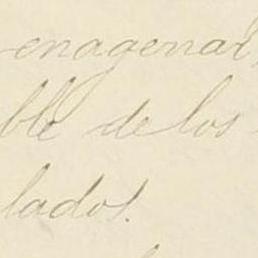 enagenar,
ble de los
lados.